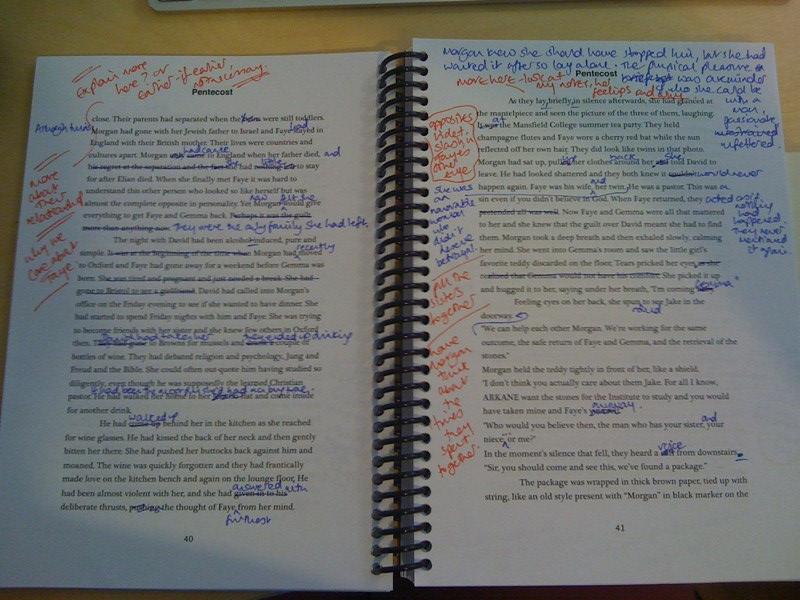 explain more
here? or
earlier if earlier
unnecessary.
Pentecost
close. Their parents had separated when the were still toddlers.
Morgan had gone with her Jewish father to Israel and Faye stayed in
England with their British mother. Their lives were countries and
cultures apart. Morgan had came to England when her father died, and
his regret at the separation and the fact of had to stay
for after Elian died. When she finally met Faye it was hard to
understand this other person who looked so like herself but was
the almost complete opposite in personality. Yet Morgan would give
everything to get Faye and Gemma back. Perhaps it was the guilt
more than anything now. They were the only family she had left.
The night with David had been alcohol induced, pure and
simple. It was at the beginning of the time when Morgan had moved recently
to Oxford and Faye had gone away for a weekend before Gemma was
born. She was tired and pregnant and just needed a break. She had
gone to Bristol to see a girlfriend. David had called into Morgan's
office on the Friday evening to see if she wanted to have dinner. She
had started to spend Friday nights with him and Faye. She was trying
to become friends with her sister and she knew few others in Oxford
then. They had gone to Browns for mussels and a couple of
bottles of wine. They had debated religion and psychology, Jung and
Freud and the Bible. She could often out-quote him having studied so
diligently, even though he was supposedly the learned Christian
pastor. He had walked her home to her flat and come inside
for another drink.
He had walked up behind her in the kitchen as she reached
for wine glasses. He had kissed the back of her neck and then gently
bitten her there. She had pushed her buttocks back against him and
moaned. The wine was quickly forgotten and they had frantically
made love on the kitchen bench and again on the lounge floor. He
had been almost violent with her, and she had given in to his answered with
deliberate thrusts, pushing the thought of Faye from her mind.
furthest
40
more
about
their
relationship
why we
care about
Faye
Morgan knew she should have stopped him, but she had
waited it after so lay alone. The physical pleasure
was a reminder
more here - look at
my notes, her
feelings and why
of who she could be
with a
man,
passionate,
unrestrained
unfettered.
Pentecost
As they lay briefly in silence afterwards, she had glanced at
the mantelpiece and seen the picture of the three of them, laughing.
It was at the Mansfield College summer tea party. They held
champagne flutes and Faye wore a cherry red hat while the sun
reflected off her own hair. They did look like twins in that photo.
Morgan had sat up, pulled her clothes around her and David to
leave. He had looked shattered and they both knew it couldn't would never
happen again. Faye was his wife, and her twin. He was a pastor. This was a
sin even if you didn't believe in God. When Faye returned, they acted as if
pretended all was well. Now Faye and Gemma were all that mattered
to her and she knew that the guilt over David meant she had to find
them. Morgan took a deep breath and then exhaled slowly, calming
her mind. She went into Gemma's room and saw the little girl's
favorite teddy discarded on the floor. Tears pricked her eyes as she
realised that Gemma would not have his comfort. She picked it up
and hugged it to her, saying under her breath, "I'm coming Gemma"
Feeling eyes on her back, she spun to see Jake in the
doorway.
"We can help each other Morgan. We're working for the same
outcome, the safe return of Faye and Gemma, and the retrieval of the
stones."
Morgan held the teddy tightly in front of her, like a shield.
"I don't think you actually care about them Jake. For all I know,
ARKANE want the stones for the Institute to study and you would
have taken mine and Faye's anyway.
"Who would you believe then, the man who has your sister, your and
niece, or me?"
In the moment's silence that fell, they heard a voice from downstairs.
"Sir, you should come and see this, we've found a package."
The package was wrapped in thick brown paper, tied up with
string, like an old style present with "Morgan" in black marker on the
41
nothing
had
happened.
They never
mentioned
it again.
opposites
She was
an
woman
who
didn't
deserve
betrayal
All the
sisters
together
have
Morgan
think
about
the
times
they
spent
together.